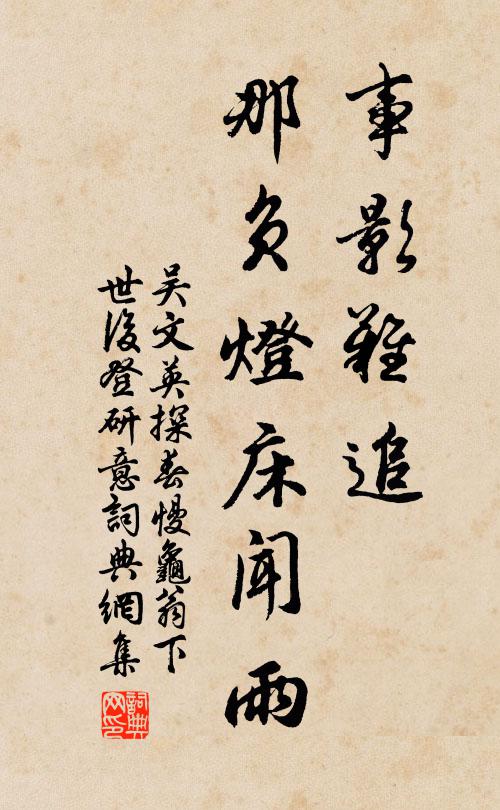 事影難追
那負燈床聞雨
吳文英探春慢龜翁下
世後登研意詞典網集
詞典網印